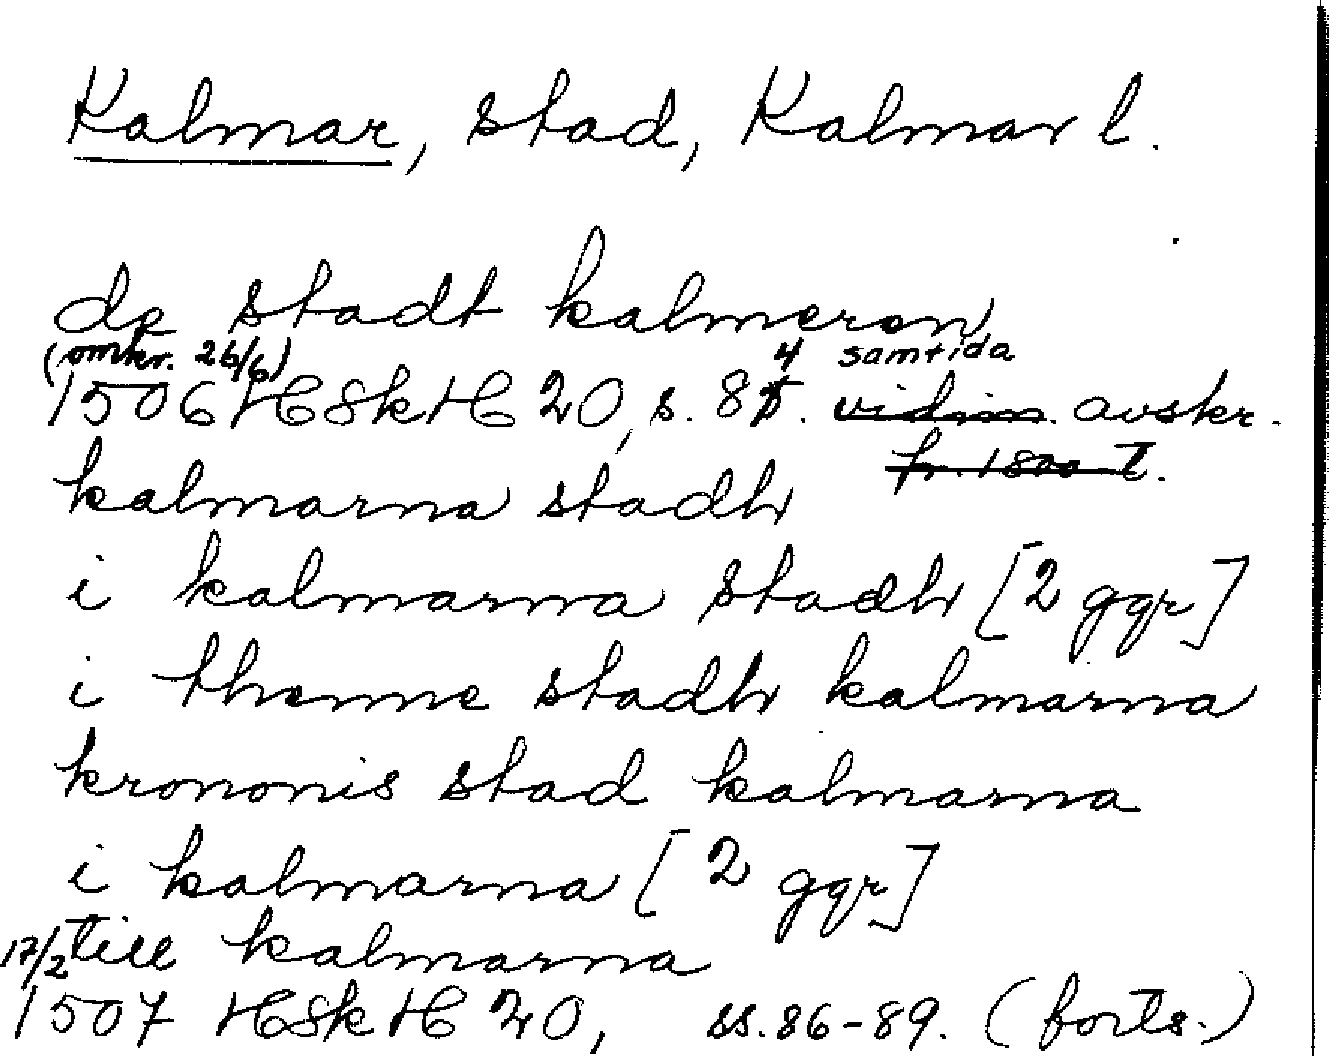 Kalmar, stad, Kalmar l.
de stadt kalmeren
(omkr. 26/6) 4 samtida
1506 HSkH 20, s. 8 . vidim. avskr.
fr. 1800-t.
kalmarna stadh
i kalmarna stadh [2 ggr]
i thenne stadh kalmarna
krononis stad kalmarna
i kalmarna [2 ggr]
17/2 till kalmarna
1507 HSkH 20, ss. 86-89. (forts.)